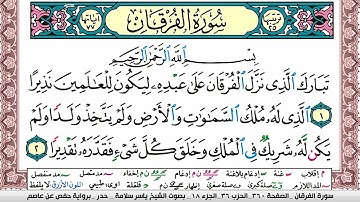 سُورَةُ الْفُرْقَانِ
بِسْمِ اللَّهِ الرَّحْمَٰنِ الرَّحِيمِ
تَبَارَكَ الَّذِي نَزَّلَ الْفُرْقَانَ عَلَىٰ عَبْدِهِ لِيَكُونَ لِلْعَالَمِينَ نَذِيرًا
١ الَّذِي لَهُ مُلْكُ السَّمَاوَاتِ وَالْأَرْضِ وَلَمْ يَتَّخِذْ وَلَدًا وَلَمْ
يَكُن لَّهُ شَرِيكٌ فِي الْمُلْكِ وَخَلَقَ كُلَّ شَيْءٍ فَقَدَّرَهُ تَقْدِيرًا ٢
سورة الفرقان - الصفحة ٣٦٠ - الجزء ١٨ - بصوت الشيخ ياسر سلامة - حدر - برواية حفص عن عاصم